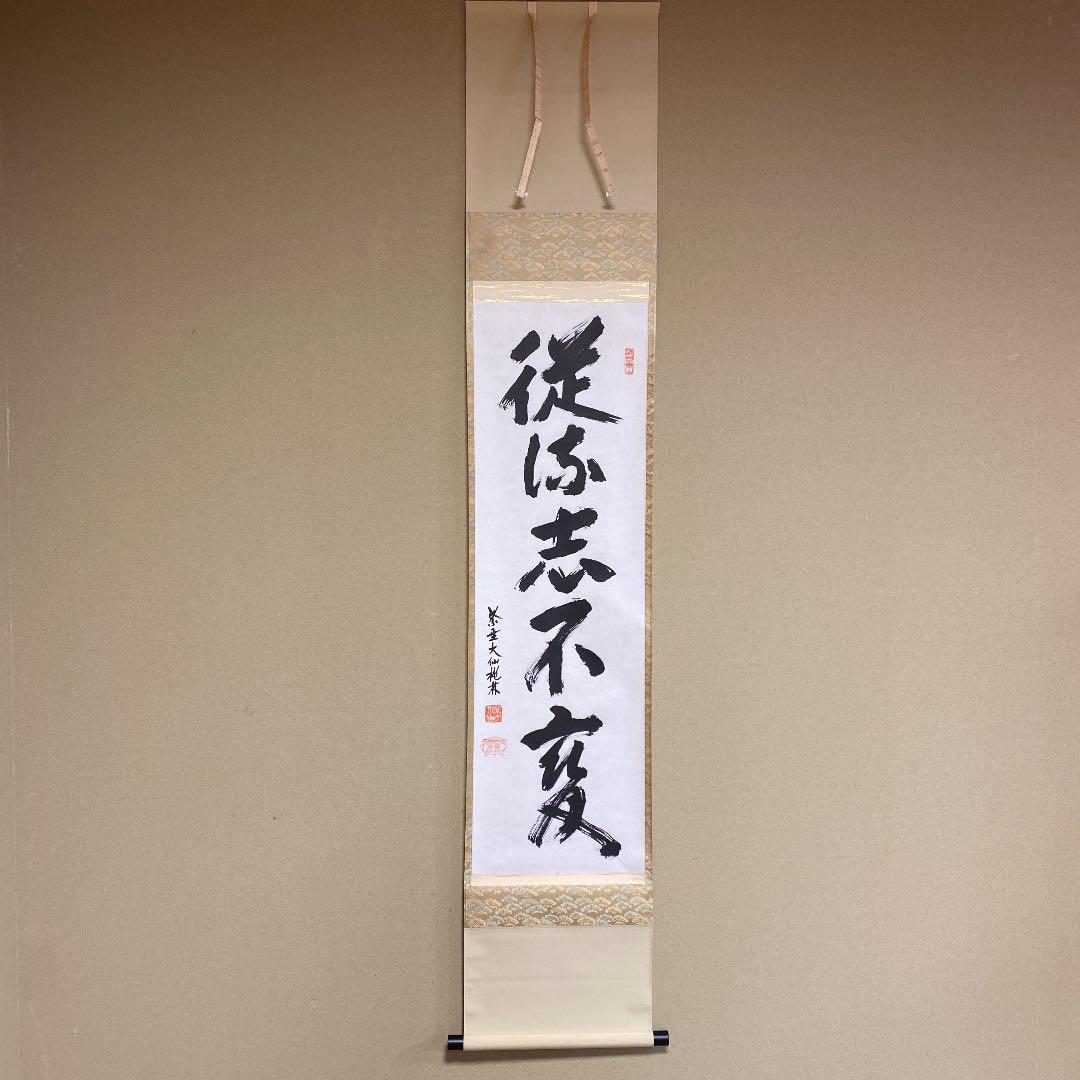 従流志不変
紫野大仙桃林